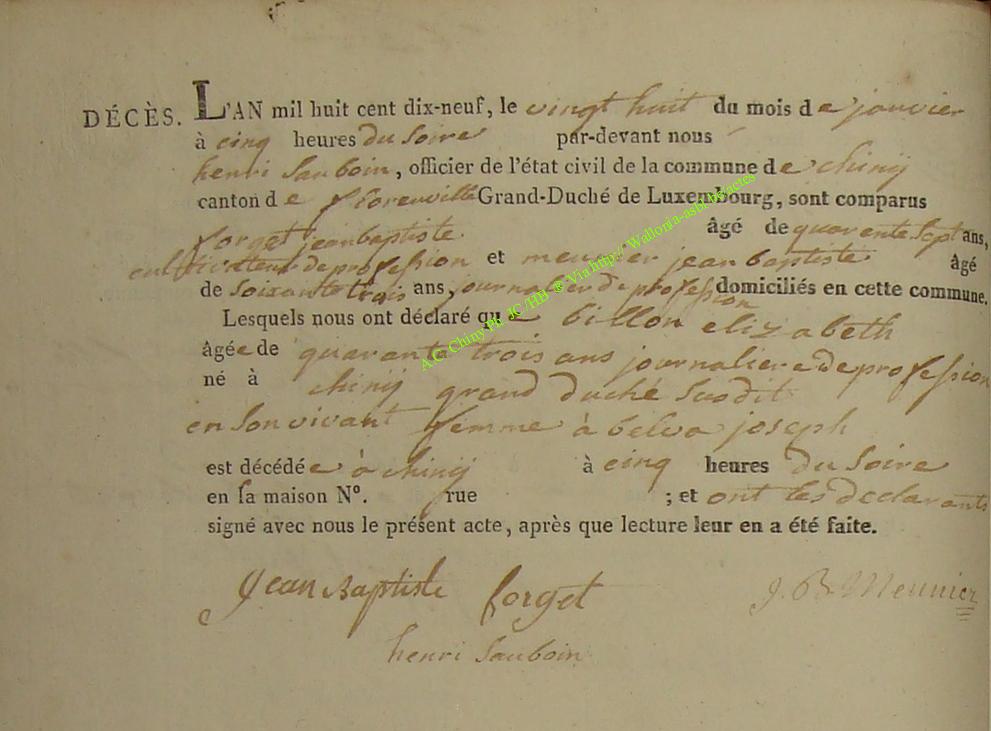 DÉCÈS. L'AN mil huit cent dix-neuf, le vingt huit du mois de janvier
à cinq heures du Soire par-devant nous
henri Sauboin, officier de l'état civil de la commune de chinij
canton de florenville Grand-Duché de Luxembourg, sont comparus
forget jean baptiste âgé de quarente Sept ans,
cultivateur de profession et meunier jean baptiste âgé
de Soixante trois ans, journalier de profession domiciliés en cette commune.
Lesquels nous ont déclaré que billon elizabeth
âgée de quaranta trois ans journaliere de profession
né à chinij grand duché Susdit
en Son vivant femme à belva joseph
est décédée à chinij à cinq heures du Soire
en sa maison N°. rue ; et ont les declarants
signé avec nous le présent acte, après que lecture leur en a été faite.
Jean Baptiste forget J. B. Meunier
henri Sauboin
A.C. Chiny Ph JC/HB ® Via http://Wallonia-asbl.be/actes